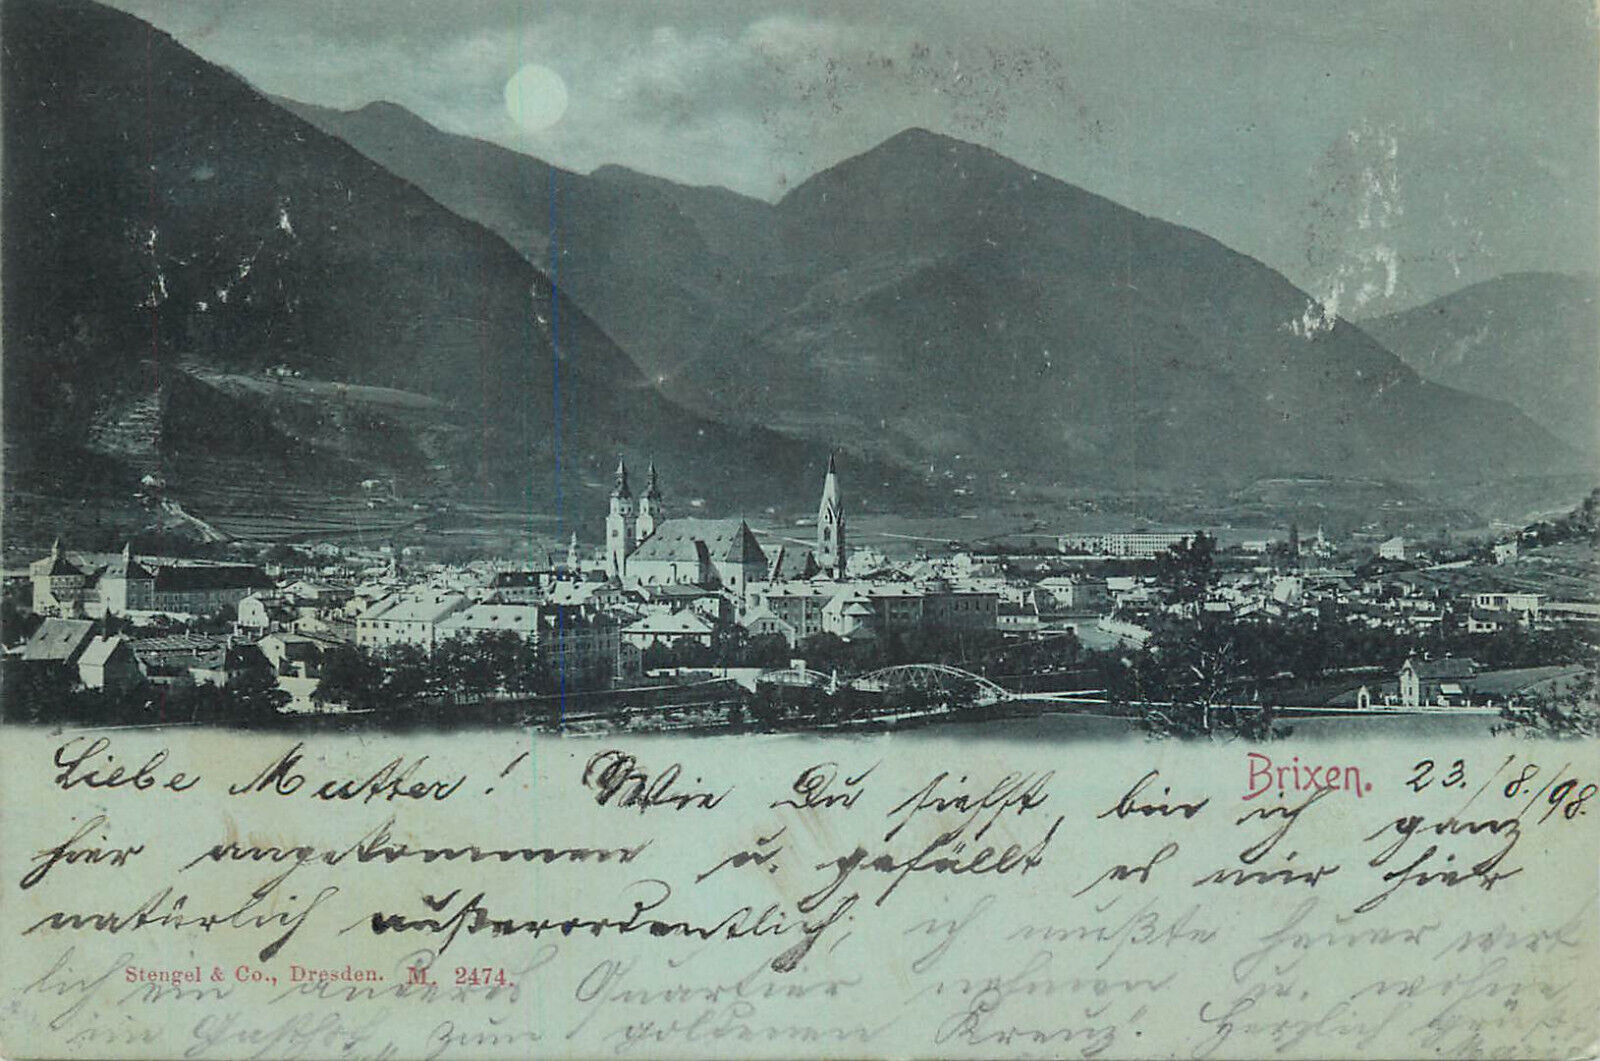 Liebe Mutter! Wie Du siehst, bin ich ganz
Brixen. 23./8./98.
hier angekommen u. gefällt es mir hier
natürlich außerordentlich; ich mußte heuer wirk
lich ein anderes Quartier nehmen u. wohne
Stengel & Co., Dresden. M. 2474.
im Gasthof „zum goldenen Kreuz". Herzlich grüßt